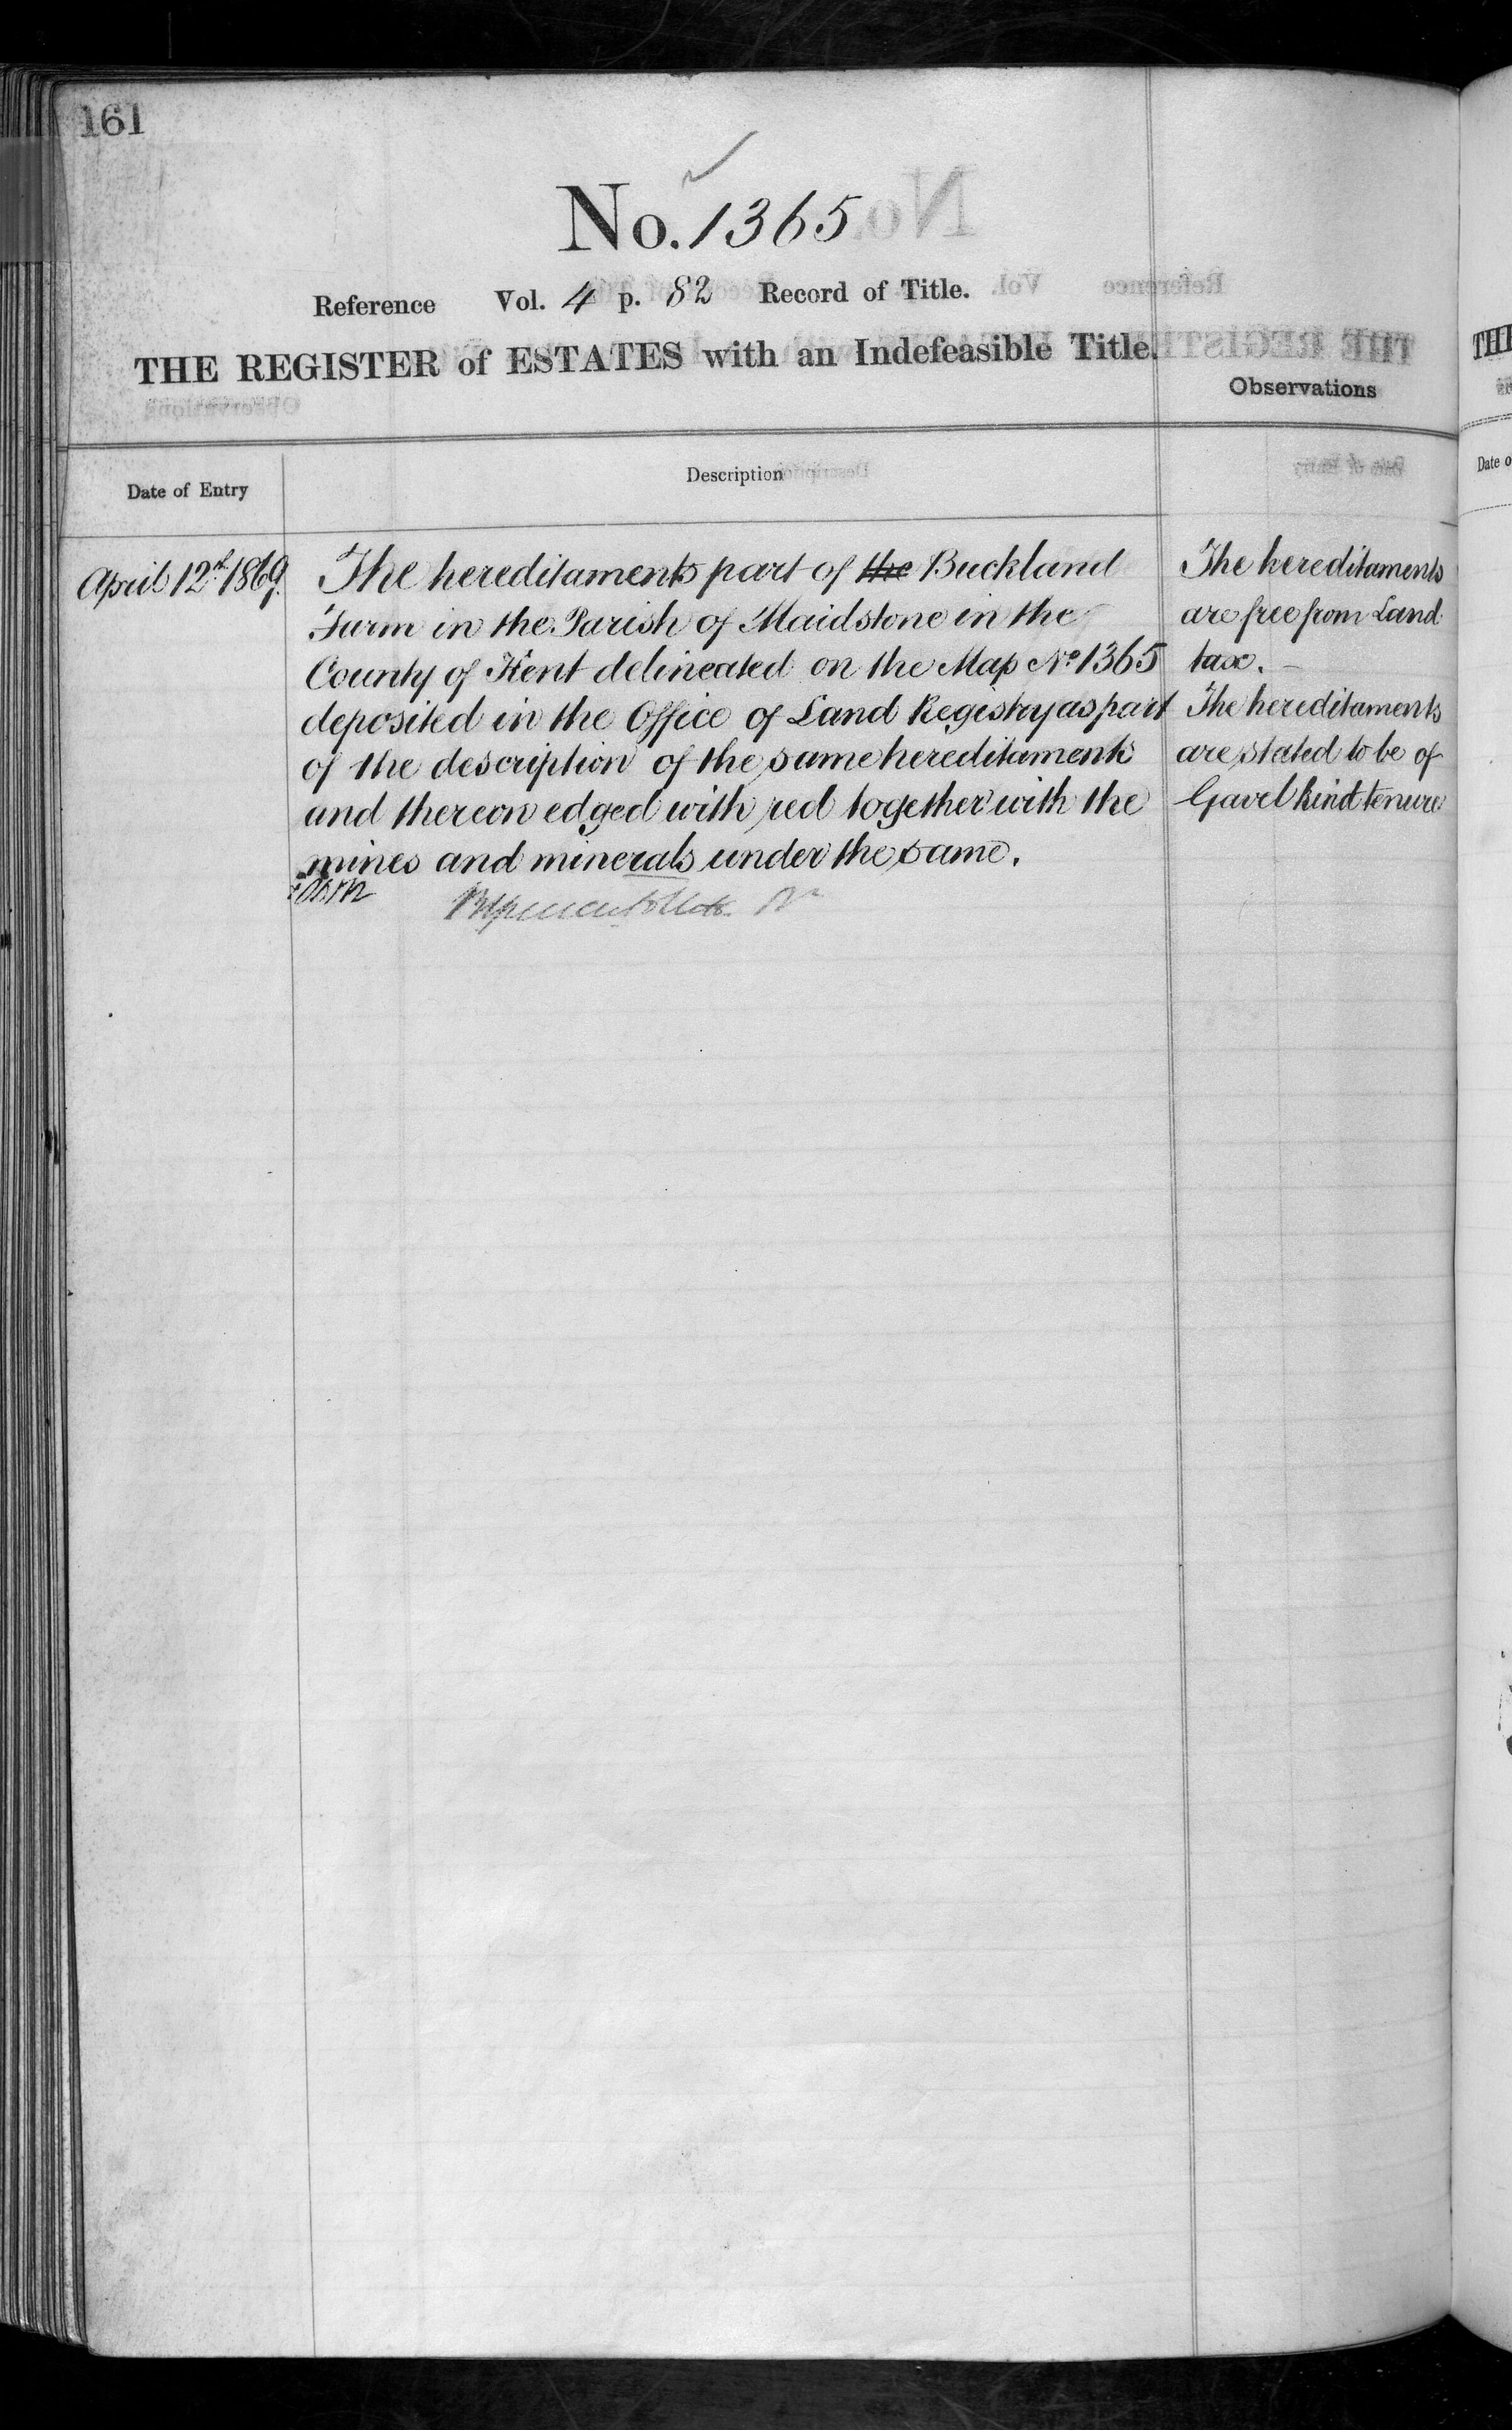 161
No. 1365
Reference Vol. 4 p. 82 Record of Title.
THE REGISTER of ESTATES with an Indefeasible Title.
Observations
Date of Entry
Description
April 12th 1869.
The hereditaments part of the Buckland
Farm in the Parish of Maidstone in the
County of Kent delineated on the Map No 1365
deposited in the Office of Land Registry as part
of the description of the same hereditaments
and thereon edged with red together with the
mines and minerals under the same.
The hereditaments
are free from Land
tax. —
The hereditaments
are stated to be of
Gavel kind tenure
Date o